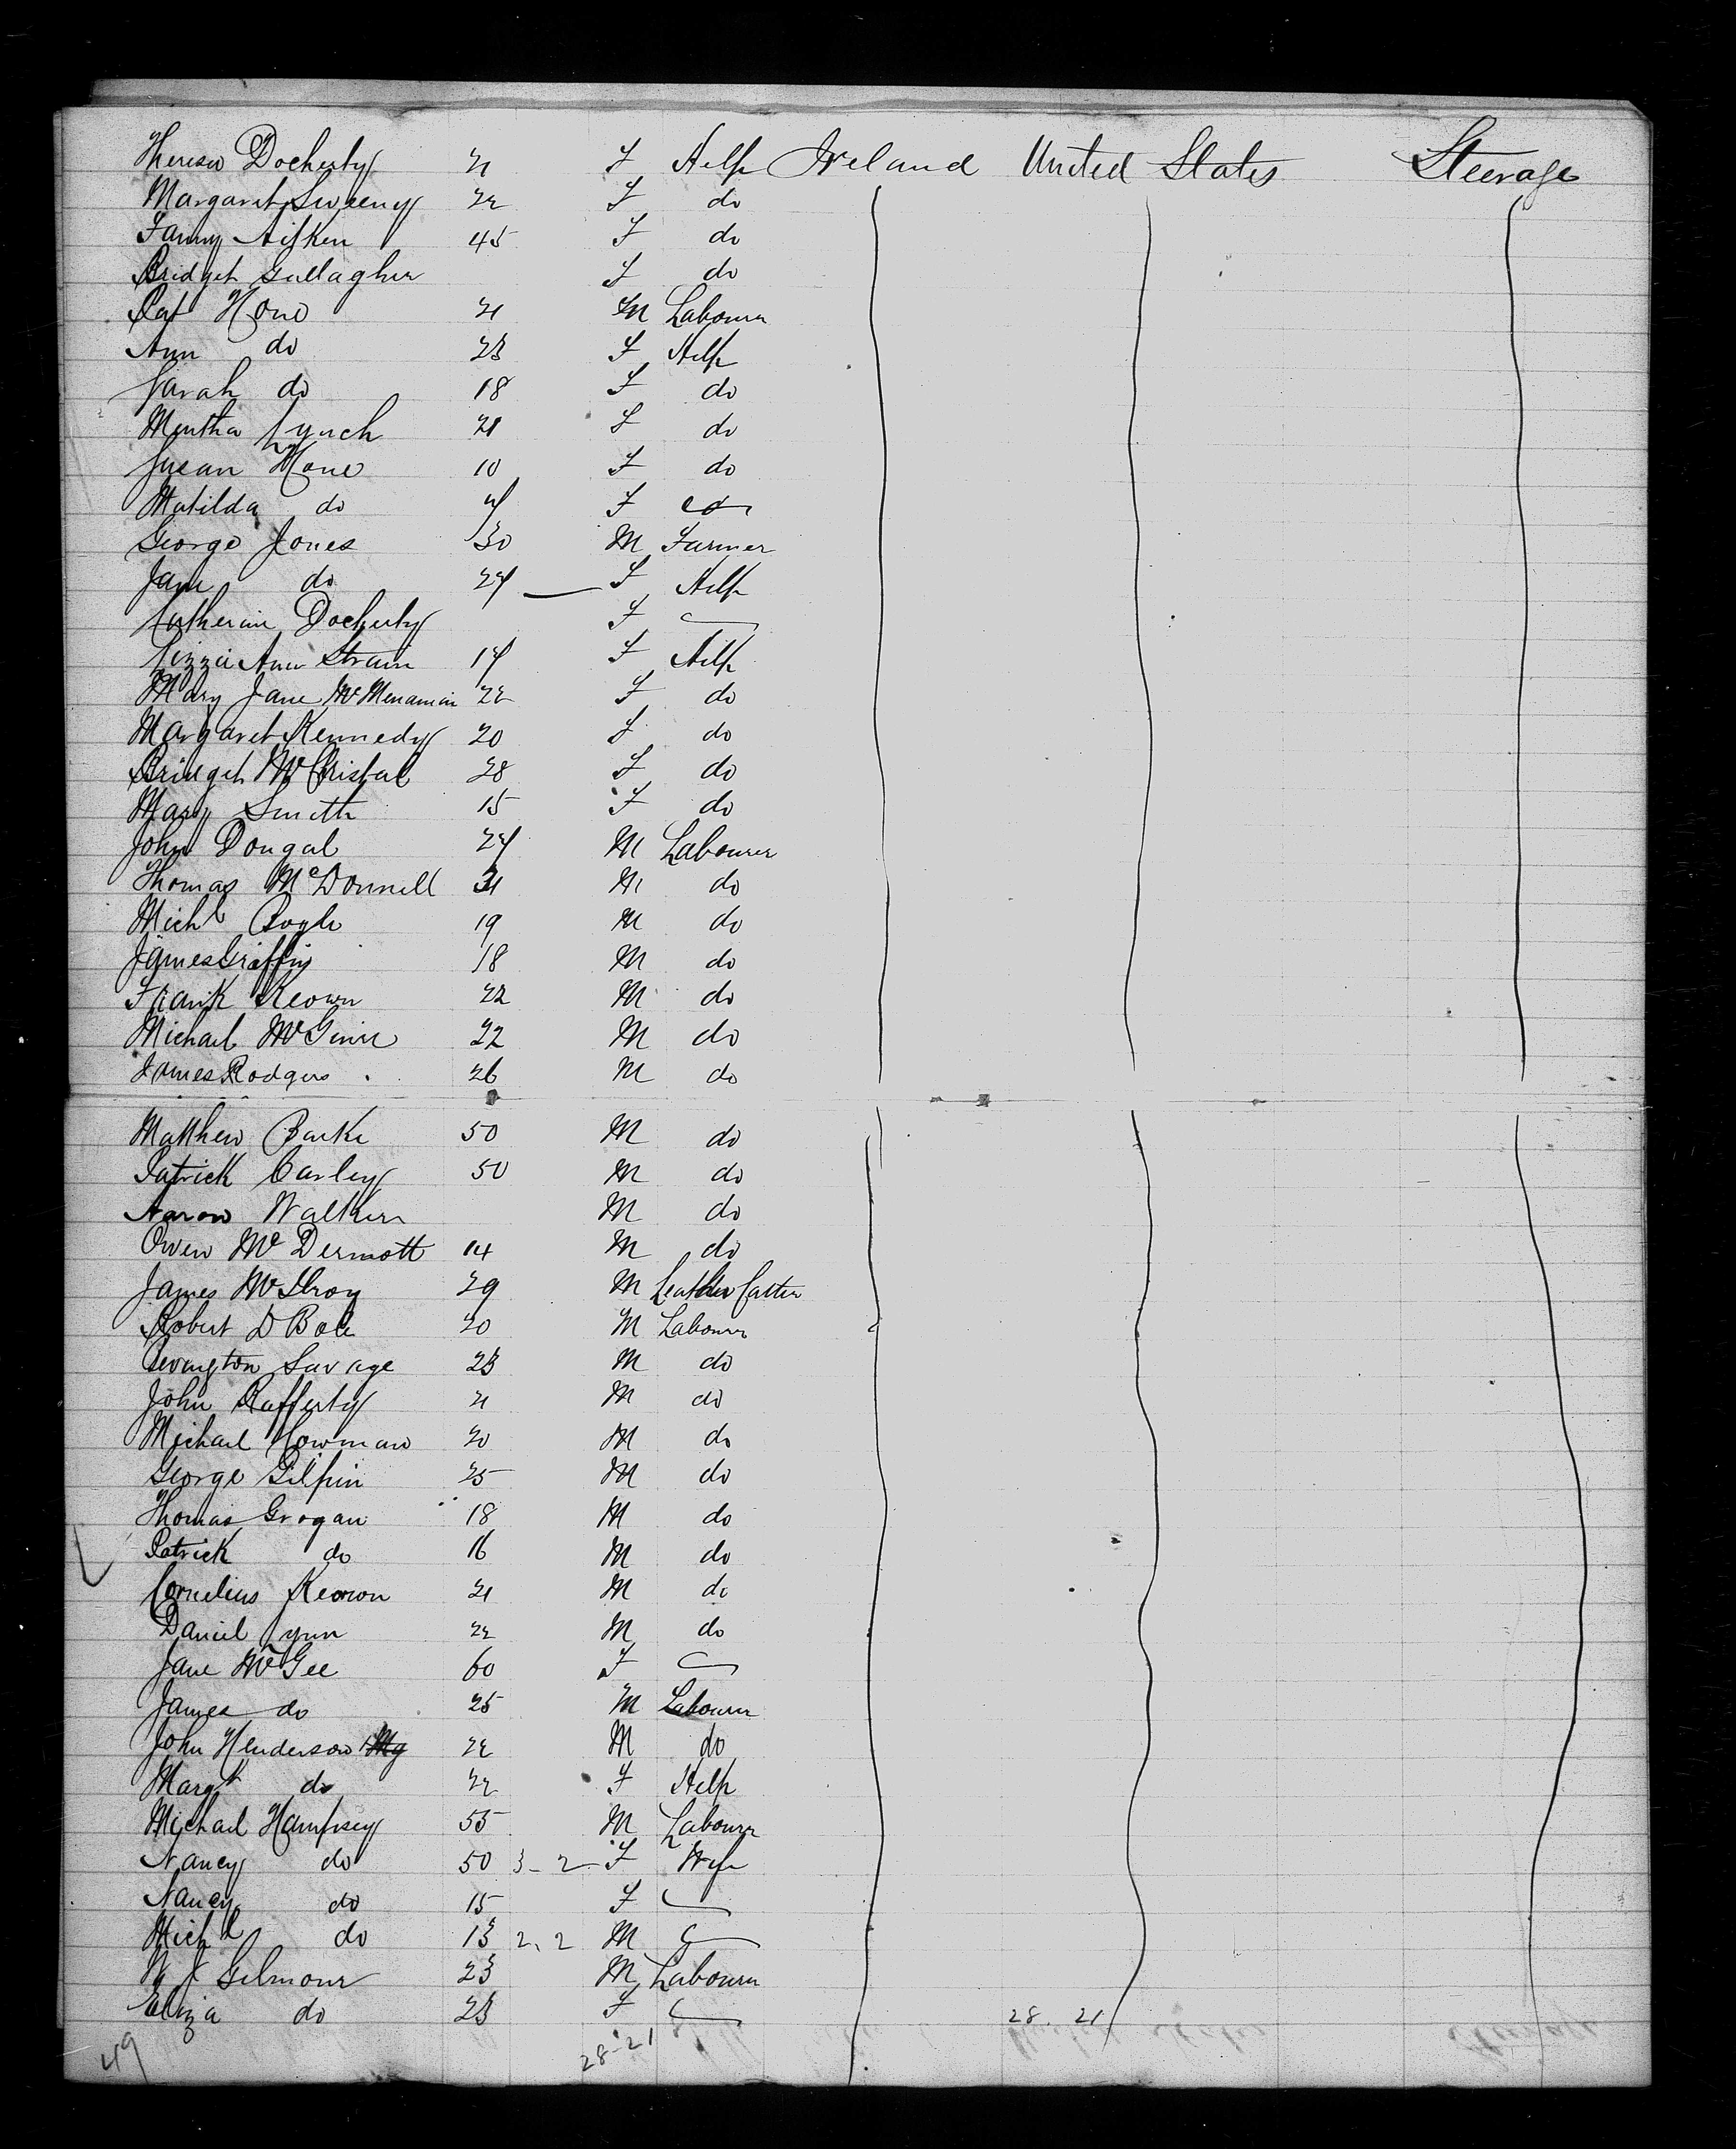 Theresa Docherty 21 F Help Ireland United States Steerage
Margaret Sweeny 22 F do
Fanny Aitken 45 F do
Bridget Gallagher F do
Pat Hone 21 M Labourer
Ann do 23 F Help
Sarah do 18 F do
Martha Lynch 21 F do
Susan Hone 10 F do
Matilda do 4 F do
George Jones 30 M Farmer
Jane do 24 F Help
Catherine Docherty F
Lizzie Ann Strain 14 F Help
Mary Jane McMenamin 22 F do
Margaret Kennedy 20 F do
Bridget McCristal 28 F do
Mary Smith 15 F do
John Dougal 24 M Labourer
Thomas McDonnell 31 M do
Michl Boyle 19 M do
James Griffin 18 M do
Frank Keown 22 M do
Michael McGuire 22 M do
James Rodgers 26 M do
Matthew Burke 50 M do
Patrick Carley 50 M do
Aaron Walker M do
Owen McDermott 14 M do
James McIlroy 29 M Leather Cutter
Robert D Bole 20 M Labourer
Savage 23 M do
John Rafferty 21 M do
Michael 20 M do
George Gilpin 25 M do
Thomas Grogan 18 M do
Patrick do 16 M do
Cornelius Keown 21 M do
Daniel Lynn 22 M do
Jane McGee 60 F
James do 25 M Labourer
John Henderson Mg 22 M do
Margt do 22 F Help
Michael Hampsey 55 M Labourer
Nancy do 50 3-2 F Wife
Nancy do 15 F
Michl do 13 2,2 M
W J Gilmour 23 M Labourer
Eliza do 23 F 28. 21
49 28-21